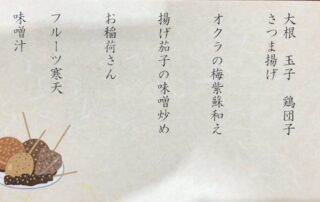 大根　玉子　鶏団子
さつま揚げ
オクラの梅紫蘇和え
揚げ茄子の味噌炒め
お稲荷さん
フルーツ寒天
味噌汁